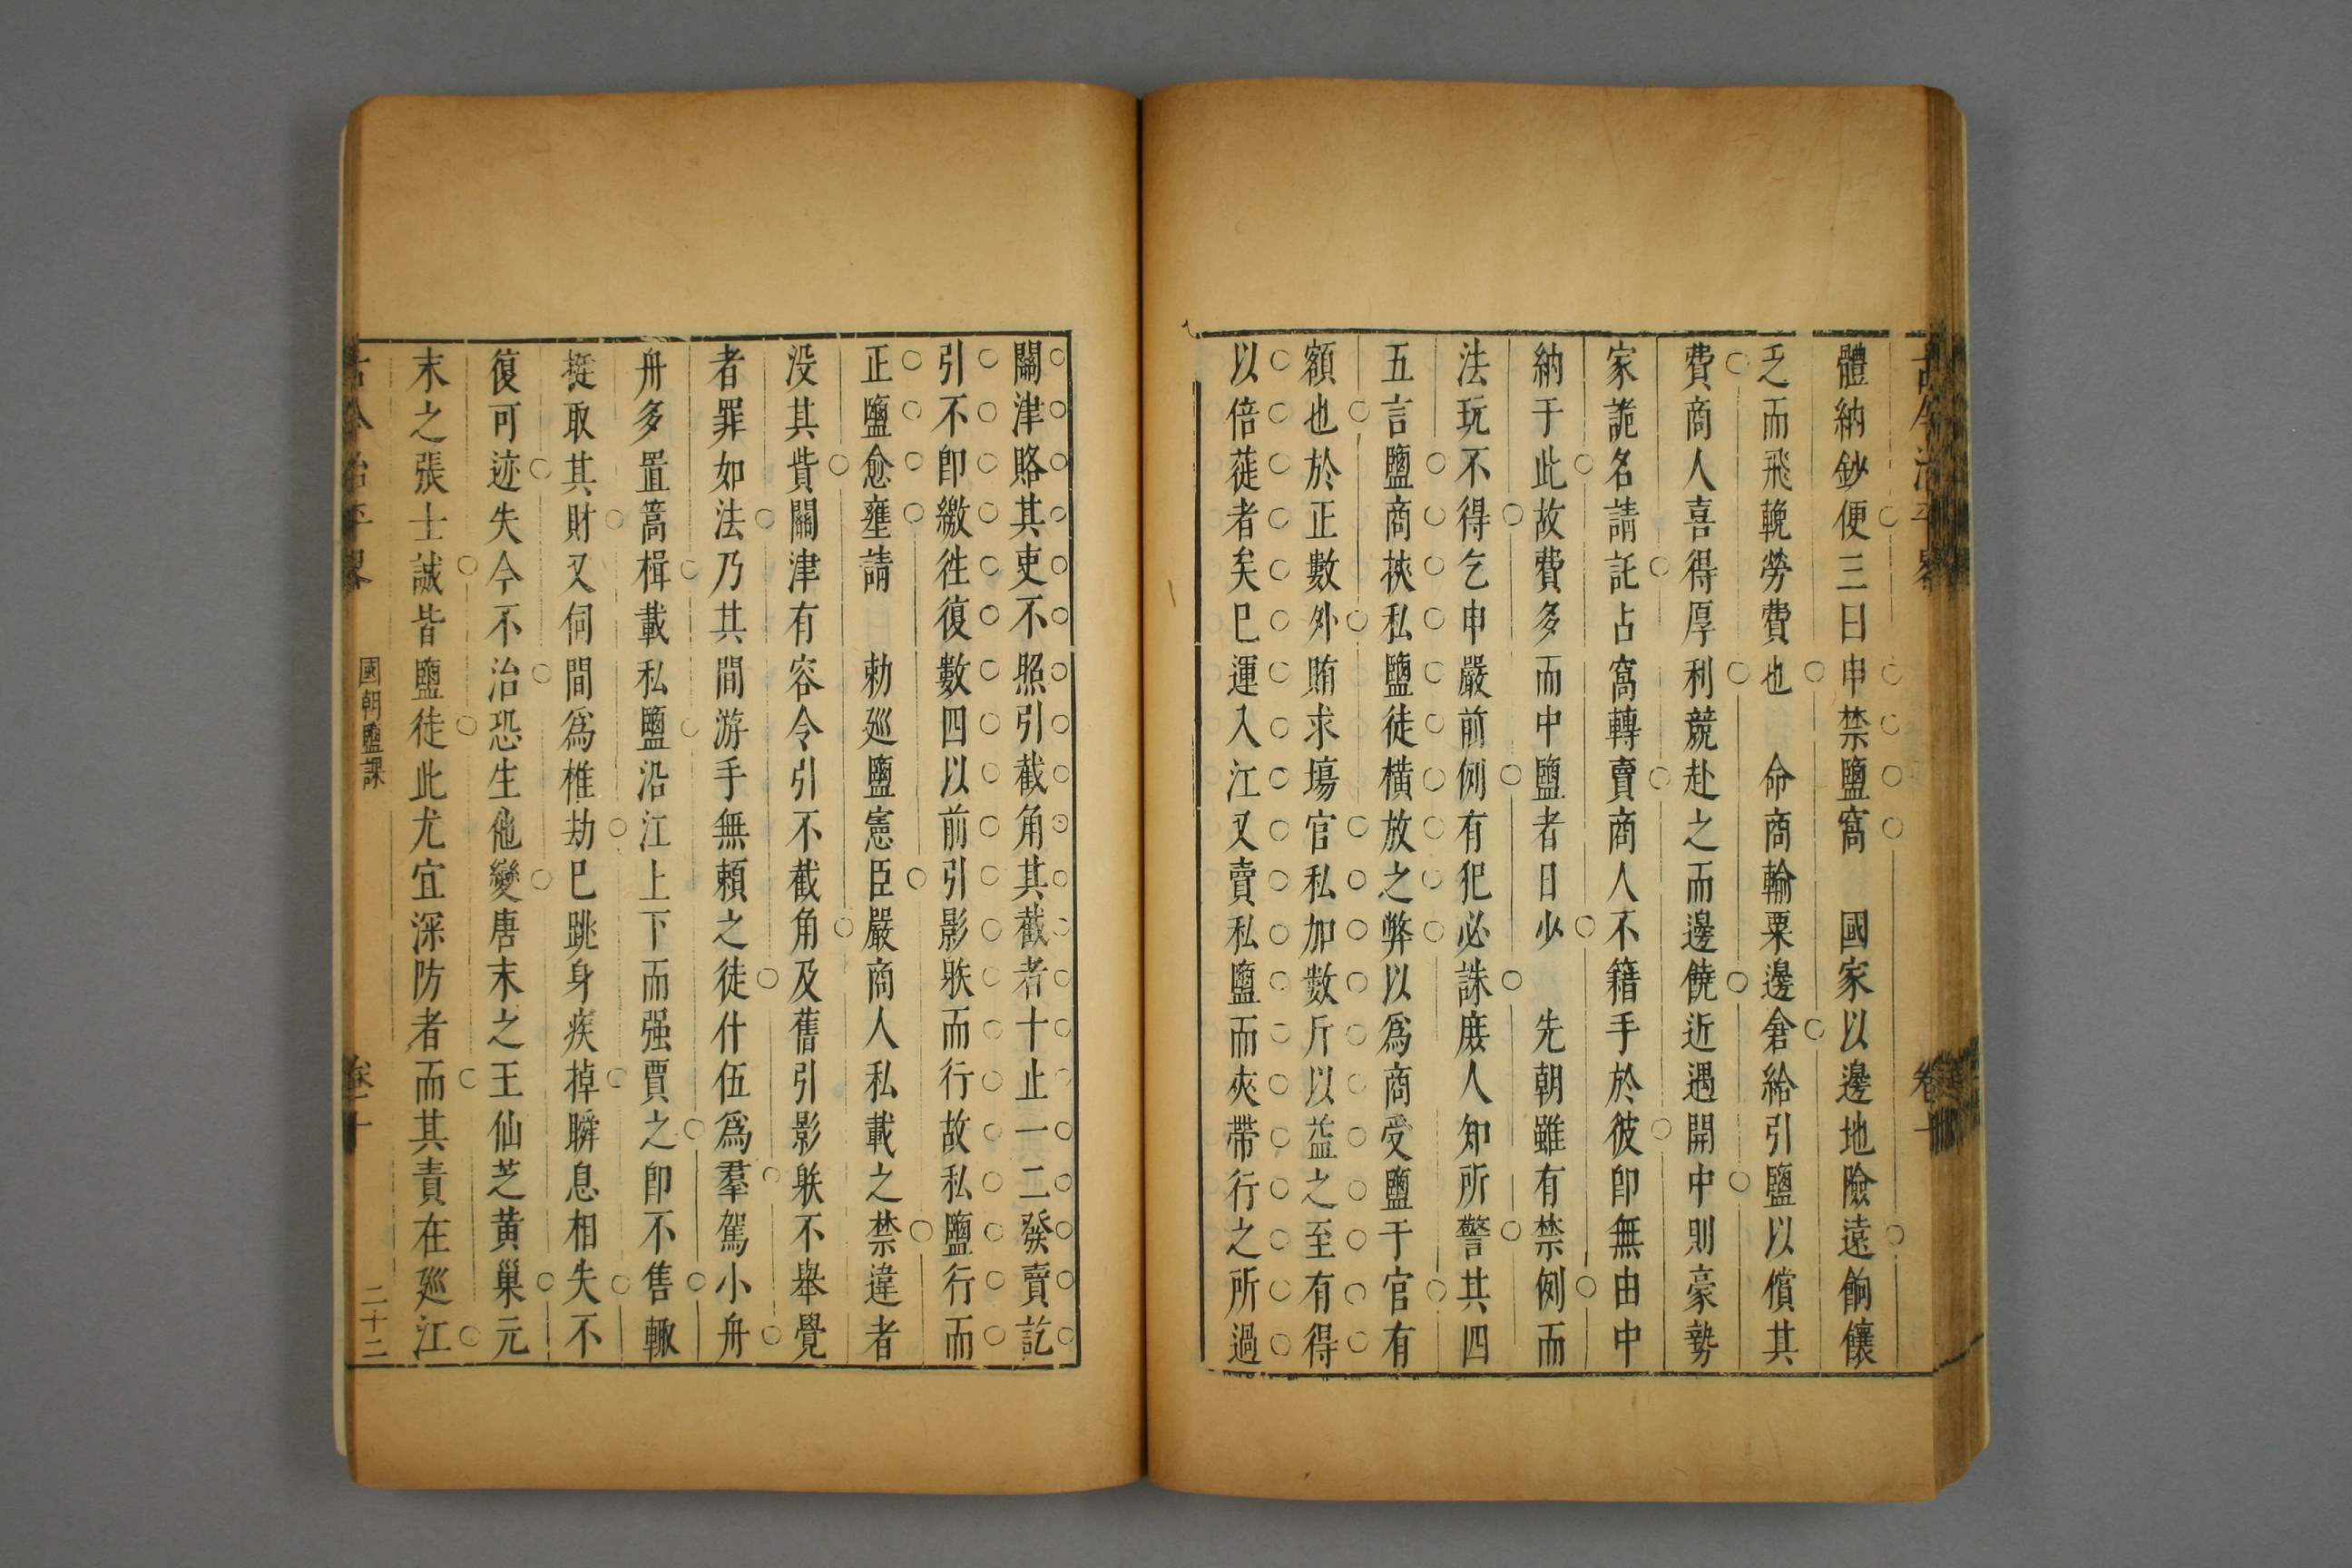 體納鈔便三曰申禁鹽窩　國家以邊地險遠餉饟
乏而飛輓勞費也　命商輸粟邊倉給引鹽以償其
費商人喜得厚利競赴之而邊饒近遇開中則豪勢
家詭名請託占窩轉賣商人不籍手於彼卽無由中
納于此故費多而中鹽者日少　先朝雖有禁例而
法玩不得乞申嚴前例有犯必誅庻人知所警其四
五言鹽商挾私鹽徒橫放之弊以爲商受鹽于官有
額也於正數外賄求場官私加數斤以益之至有得
以倍蓰者矣巳運入江又賣私鹽而夾帶行之所過
關津賂其吏不照引截角其截者十止一二發賣訖
引不卽繳徃復數四以前引影躲而行故私鹽行而
正鹽愈壅請　勅廵鹽憲臣嚴商人私載之禁違者
没其貲關津有容令引不截角及舊引影躲不舉覺
者罪如法乃其間游手無賴之徒什伍爲羣駕小舟
舟多置篙楫載私鹽沿江上下而强賈之卽不售輙
挺取其財又伺間爲椎劫巳跳身疾掉瞬息相失不
復可迹失今不治恐生他變唐末之王仙芝黄巢元
末之張士誠皆鹽徒此尤宜深防者而其責在廵江
古今治平畧　國朝鹽課　卷十　二十二